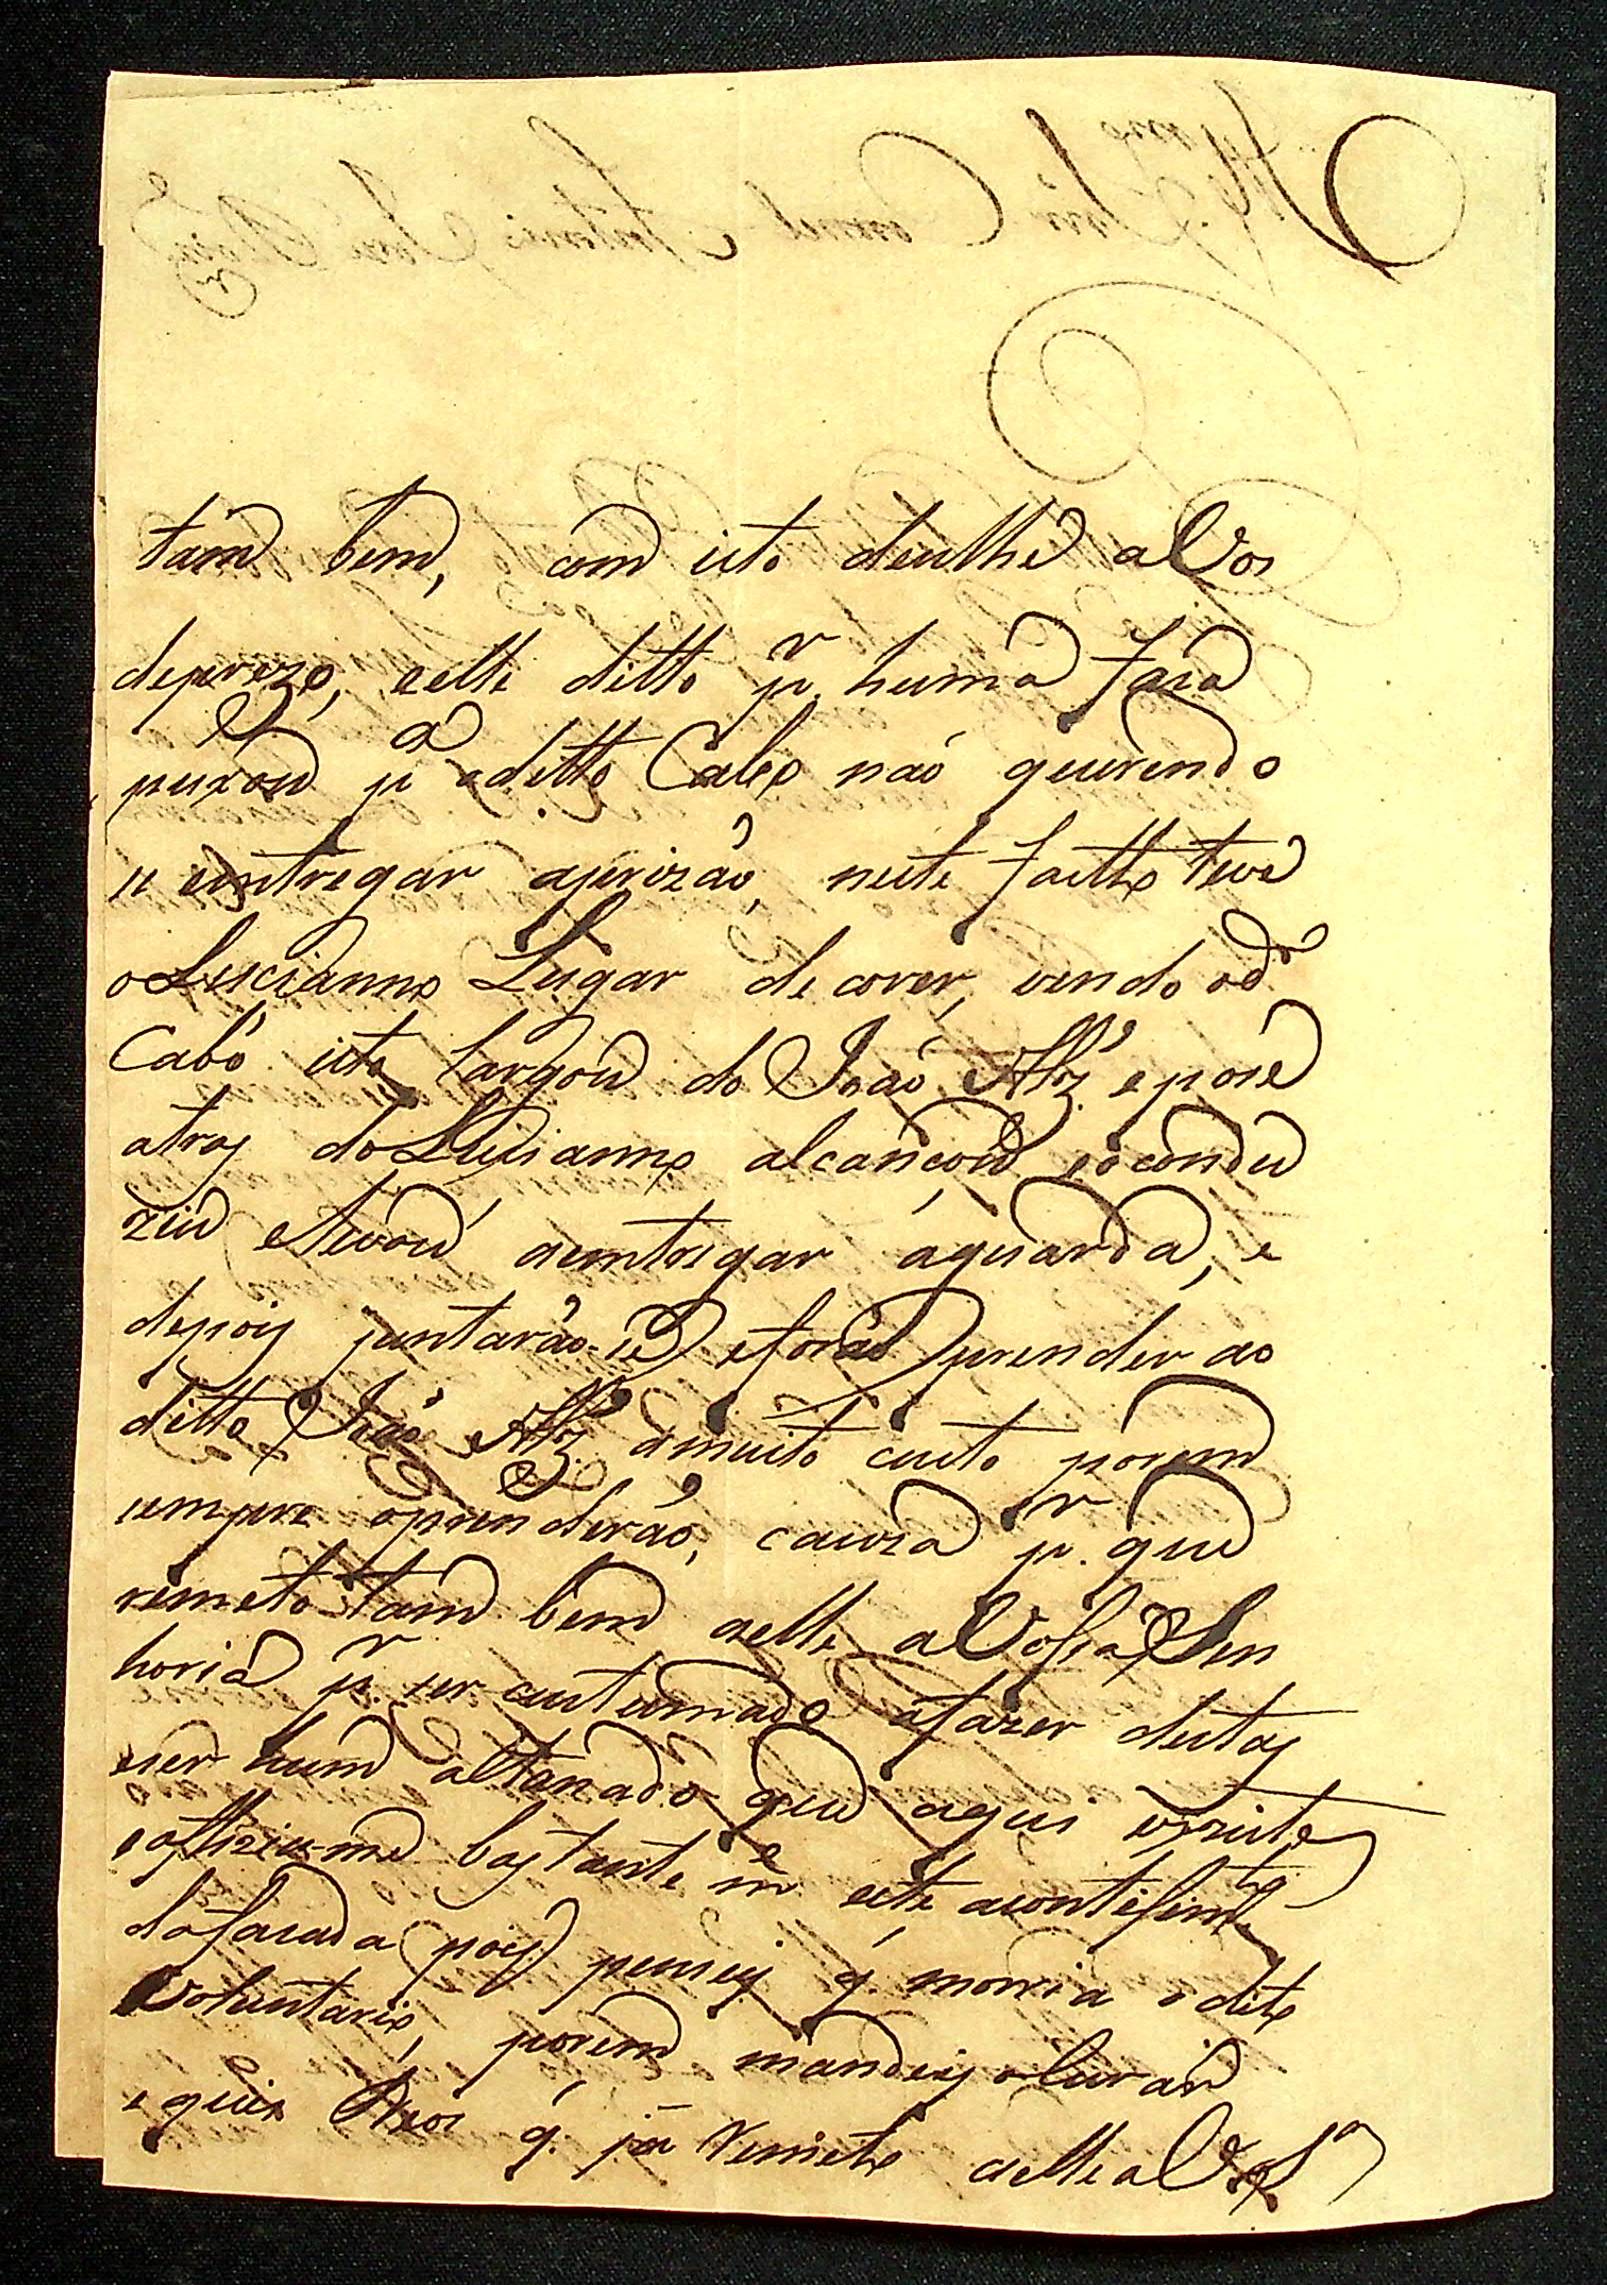 tam bem, com isto deulhe a Vos
deprezo, eelle ditto pr. huma faca
puxou pa. oditto Cabo não querendo
se entregar aprizão, neste facto teve
o Luscianno Lugar de corer, vendo o do.
Cabo isto largou do João Alz. e pose
atras do Luscianno alcançou eo condu
ziu e levou aentregar aguarda, e
depois juntarão-se eforão prender ao
ditto João Alz. amuito custo porem
sempre oprenderão, cauza pr. que
remeto tam bem aelle a Vossa Sen
horia pr. ser custumado afazer destas
eser hum altanado que aqui izziste
eafliziu-me bastante me. este acontesimto.
dafacada pois pensei q. morria o dito
Voluntario, porem mandei o Curar
e quis Deos q. já Remeto aelle a V. Sa